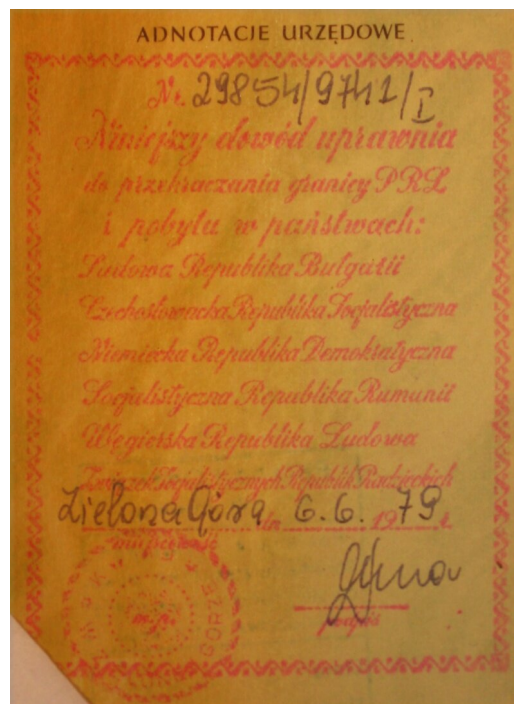 ADNOTACJE URZĘDOWE
Nr 29854/9741/I
Niniejszy dowód uprawnia
do przekraczania granicy PRL
i pobytu w państwach:
Ludowa Republika Bułgarii
Czechosłowacka Republika Socjalistyczna
Niemiecka Republika Demokratyczna
Socjalistyczna Republika Rumunii
Węgierska Republika Ludowa
Związek Socjalistycznych Republik Radzieckich
Zielona Góra dn. 6.6. 1979 r.
miejscowość
m.p.
GÓRZE
podpis